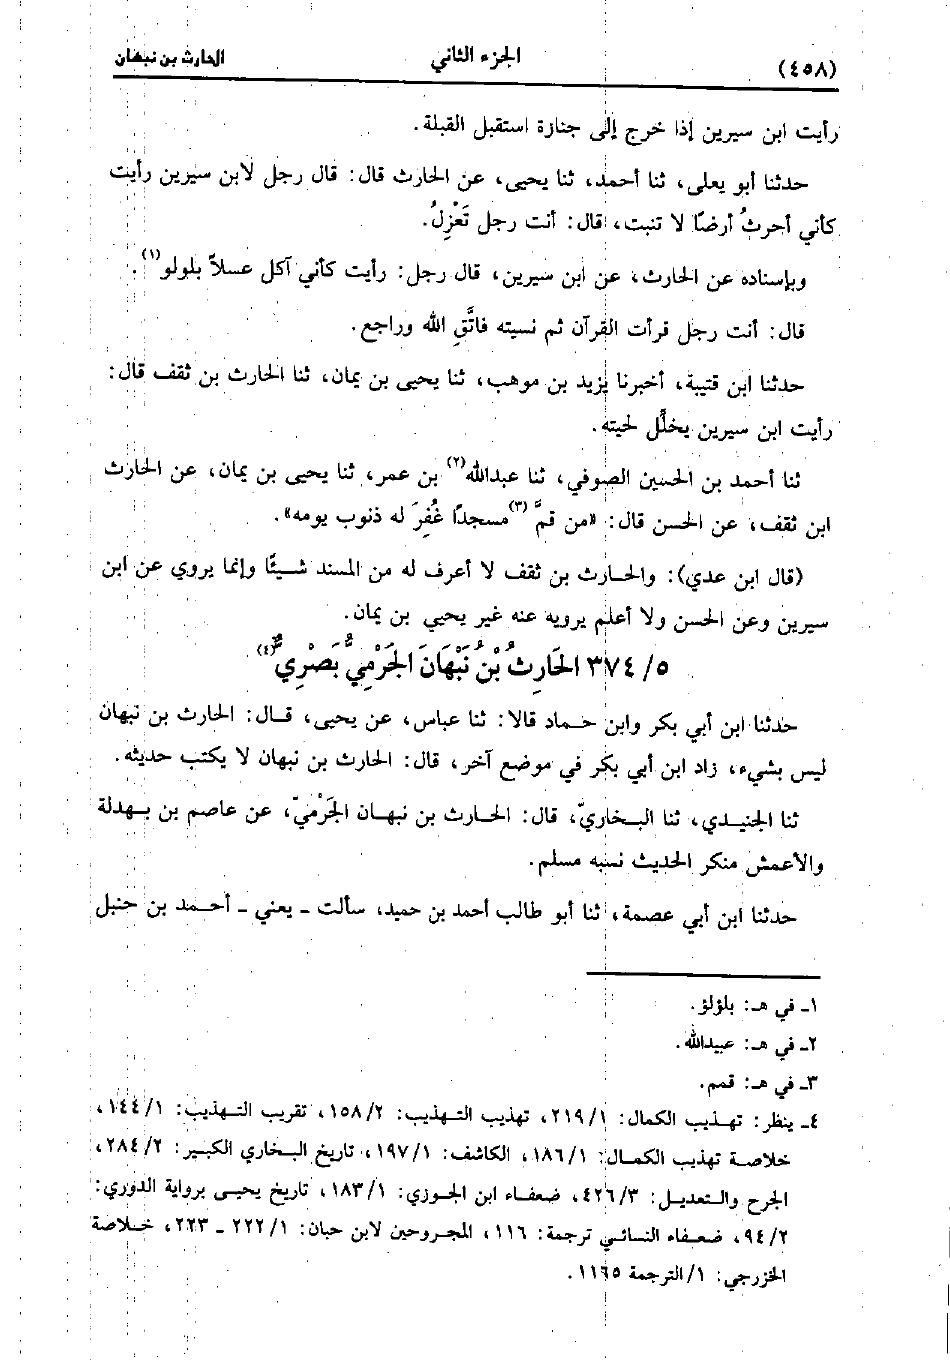 (٤٥٨) الجزء الثاني الحارث بن نبهان
رأيت ابن سيرين إذا خرج إلى جنازة استقبل القبلة.
حدثنا أبو يعلى، ثنا أحمد، ثنا يحيى، عن الحارث قال: قال رجل لابن سيرين رأيت
كأني أحرثُ أرضًا لا تنبت، قال: أنت رجل تَعْزِلُ.
وبإسناده عن الحارث، عن ابن سيرين، قال رجل: رأيت كأني آكل عسلاً بلولو(١).
قال: أنت رجل قرأت القرآن ثم نسيته فاتَّقِ الله وراجع.
حدثنا ابن قتيبة، أخبرنا يزيد بن موهب، ثنا يحيى بن يمان، ثنا الحارث بن ثقف قال:
رأيت ابن سيرين يخلَّل لحيته.
ثنا أحمد بن الحسين الصوفي، ثنا عبدالله(٢) بن عمر، ثنا يحيى بن يمان، عن الحارث
ابن ثقف، عن الحسن قال: «من قمَّ(٣) مسجدًا غُفِرَ له ذنوب يومه».
(قال ابن عدي): والحارث بن ثقف لا أعرف له من المسند شيئًا وإنما يروي عن ابن
سيرين وعن الحسن ولا أعلم يرويه عنه غير يحيي بن يمان.
٥/ ٣٧٤ الحَارِثُ بْنُ نَبْهَانَ الجَرْمِيُّ بَصْرِيٌّ(٤)
حدثنا ابن أبي بكر وابن حماد قالا: ثنا عباس، عن يحيى، قال: الحارث بن نبهان
ليس بشيء، زاد ابن أبي بكر في موضع آخر، قال: الحارث بن نبهان لا يكتب حديثه.
ثنا الجنيدي، ثنا البخاريّ، قال: الحارث بن نبهان الجَرْميّ، عن عاصم بن بهدلة
والأعمش منكر الحديث نسبه مسلم.
حدثنا ابن أبي عصمة، ثنا أبو طالب أحمد بن حميد، سألت ـ يعني ـ أحمد بن حنبل
١ـ في هـ: بلؤلؤ.
٢ـ في هـ: عبيدالله.
٣ـ في هـ: قمم.
٤ـ ينظر: تهذيب الكمال: ٢١٩/١، تهذيب التهذيب: ١٥٨/٢، تقريب التهذيب: ١٤٤/١،
خلاصة تهذيب الكمال: ١٨٦/١، الكاشف: ١٩٧/١، تاريخ البخاري الكبير: ٢٨٤/٢،
الجرح والتعديل: ٤٢٦/٣، ضعفاء ابن الجوزي: ١٨٣/١، تاريخ يحيى برواية الدوري:
٩٤/٢، ضعفاء النسائي ترجمة: ١١٦، المجروحين لابن حبان: ٢٢٢/١ ـ ٢٢٣، خلاصة
الخزرجي: ١/ الترجمة ١١٦٥.